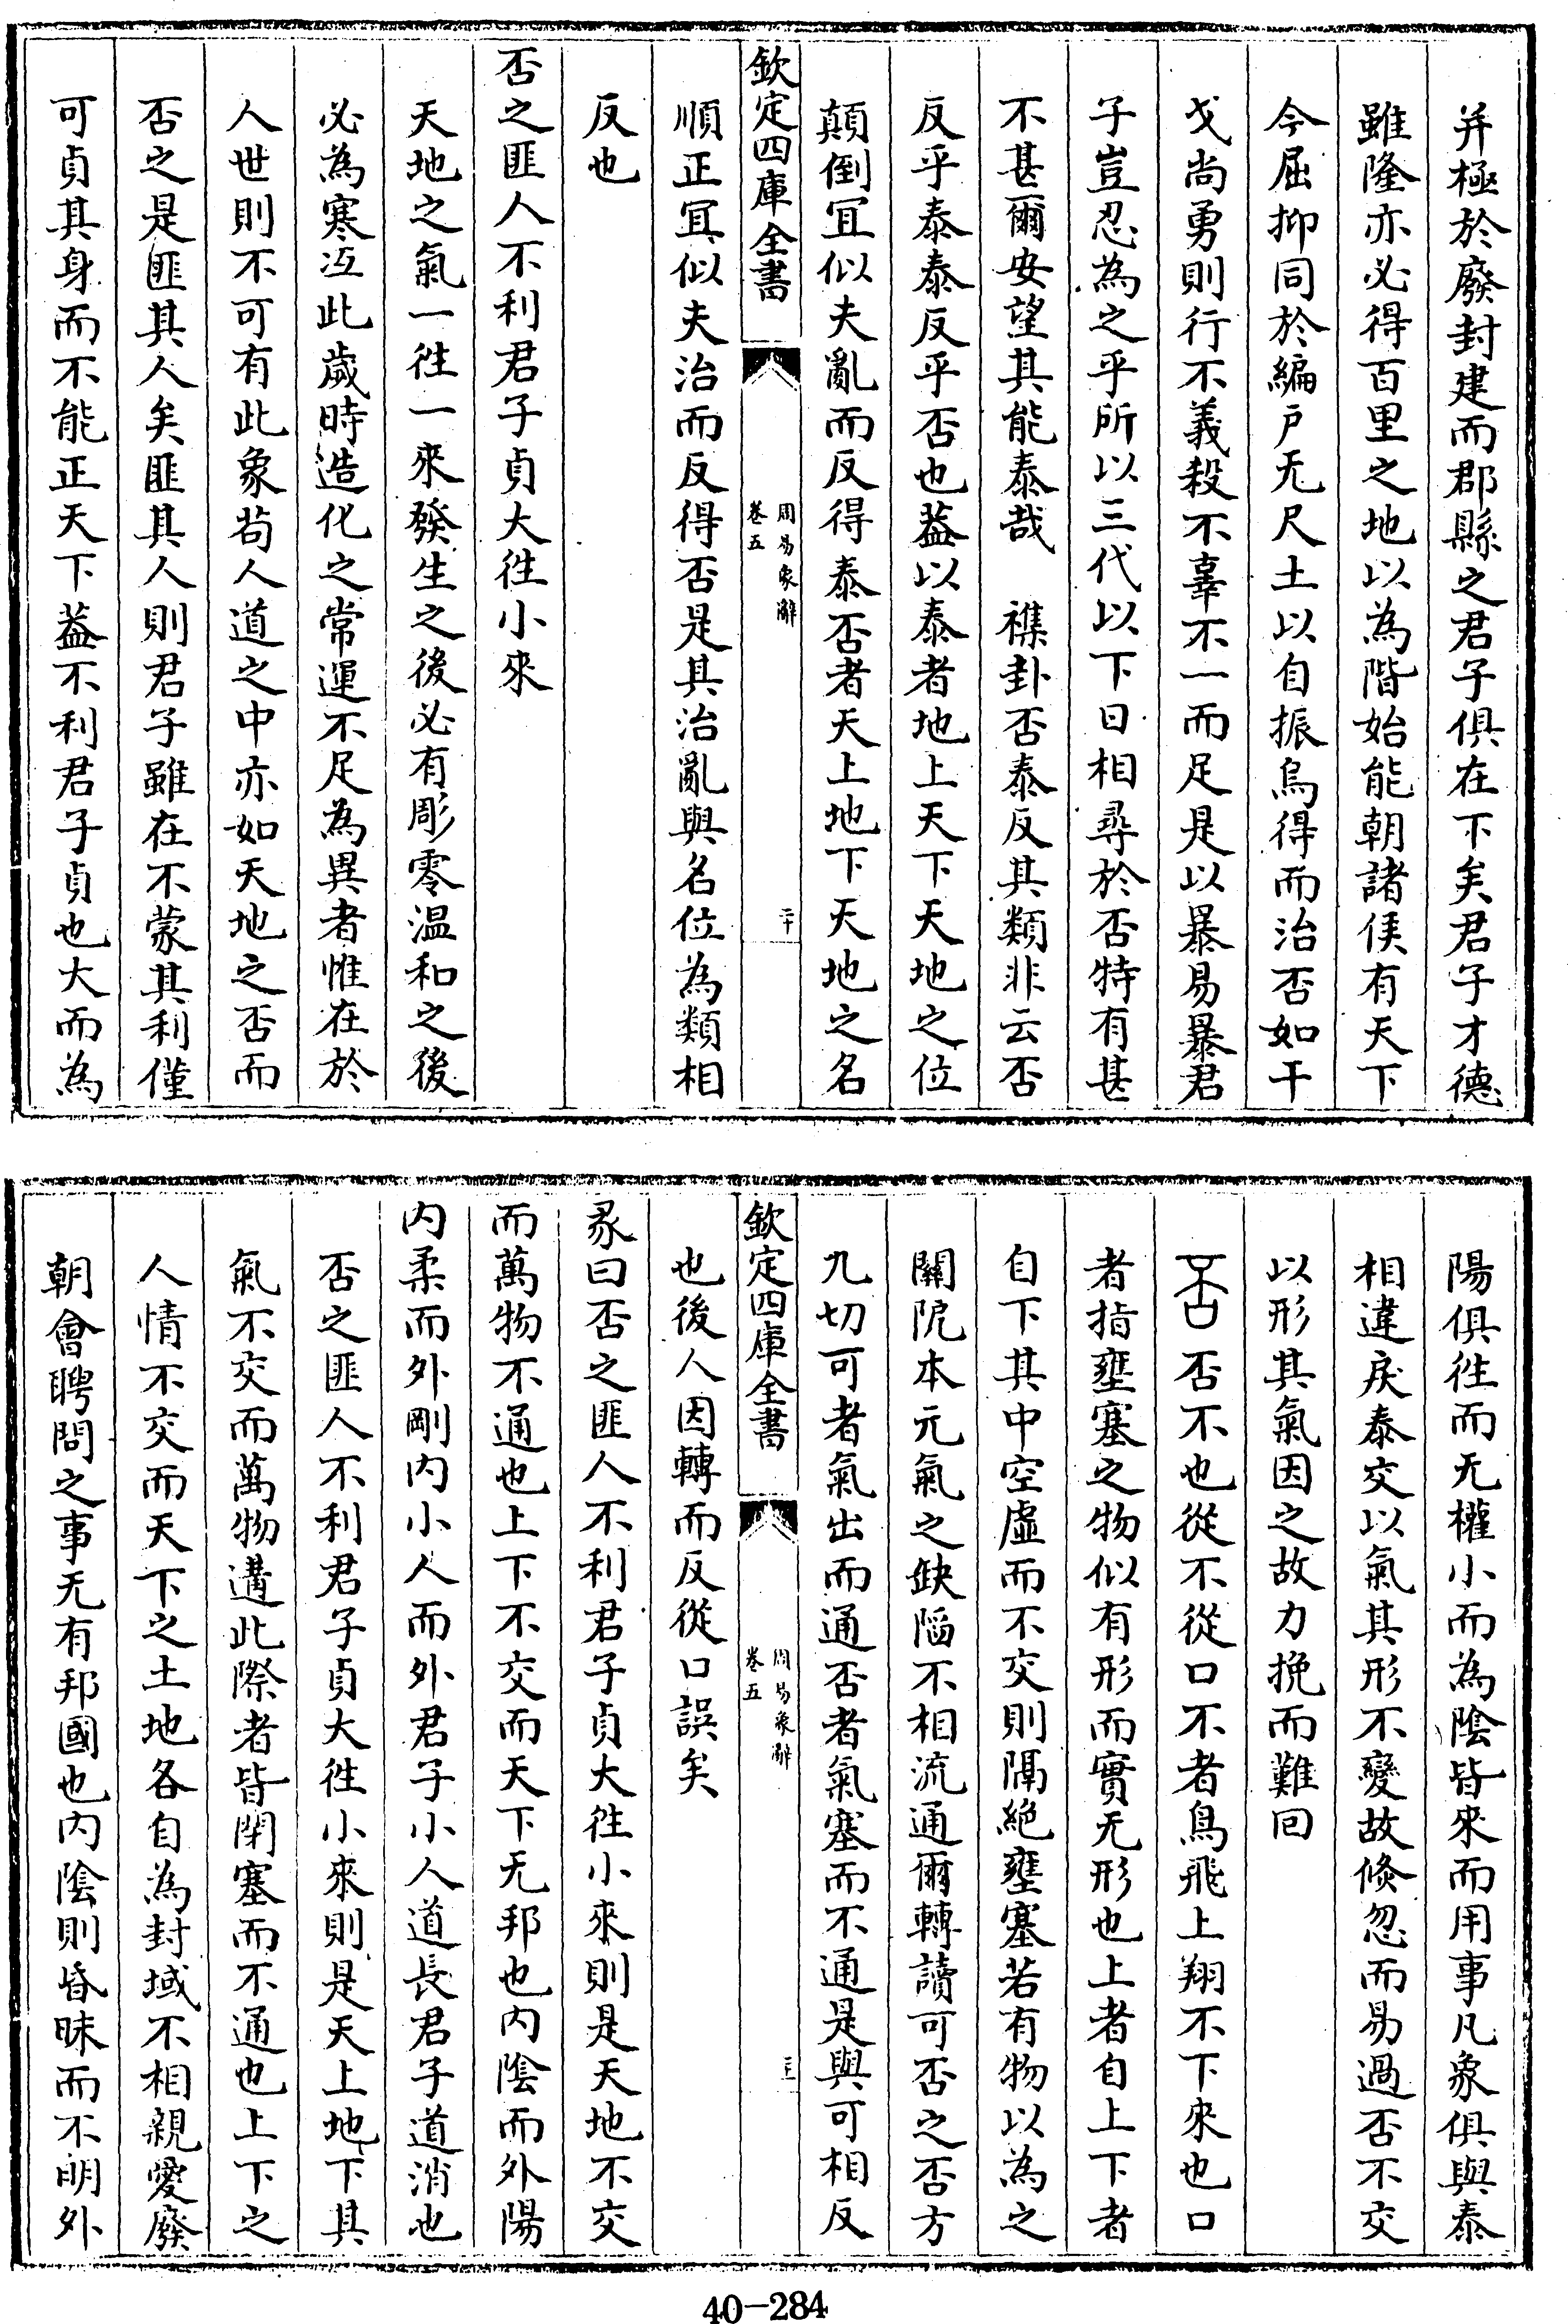 并極於廢封建而郡縣之君子俱在下矣君子才德
雖隆亦必得百里之地以為階始能朝諸侯有天下
今屈抑同於編戶无尺土以自振烏得而治否如干
戈尚勇則行不義殺不辜不一而足是以暴易暴君
子豈忍為之乎所以三代以下日相尋於否特有甚
不甚爾安望其能泰哉　襍卦否泰反其類非云否
反乎泰泰反乎否也葢以泰者地上天下天地之位
顛倒冝似夫亂而反得泰否者天上地下天地之名
欽定四庫全書
周易象辭
卷五
二十
順正冝似夫治而反得否是其治亂與名位為類相
反也
否之匪人不利君子貞大徃小來
天地之氣一徃一來發生之後必有彫零温和之後
必為寒冱此歲時造化之常運不足為異者惟在於
人世則不可有此象茍人道之中亦如天地之否而
否之是匪其人矣匪其人則君子雖在不蒙其利僅
可貞其身而不能正天下葢不利君子貞也大而為
陽俱徃而无權小而為陰皆來而用事凡象俱與泰
相違戾泰交以氣其形不變故倐忽而易過否不交
以形其氣因之故力挽而難回
否不也從不從口不者鳥飛上翔不下來也口
者指壅塞之物似有形而實无形也上者自上下者
自下其中空虛而不交則隔絶壅塞若有物以為之
關阸本元氣之缺陷不相流通爾轉讀可否之否方
凡切可者氣出而通否者氣塞而不通是與可相反
欽定四庫全書
周易象辭
卷五
二十一
也後人因轉而反從口誤矣
彖曰否之匪人不利君子貞大徃小來則是天地不交
而萬物不通也上下不交而天下无邦也内陰而外陽
内柔而外剛内小人而外君子小人道長君子道消也
否之匪人不利君子貞大徃小來則是天上地下其
氣不交而萬物遘此際者皆閉塞而不通也上下之
人情不交而天下之土地各自為封域不相親愛廢
朝會聘問之事无有邦國也内陰則昏昧而不明外
40-284